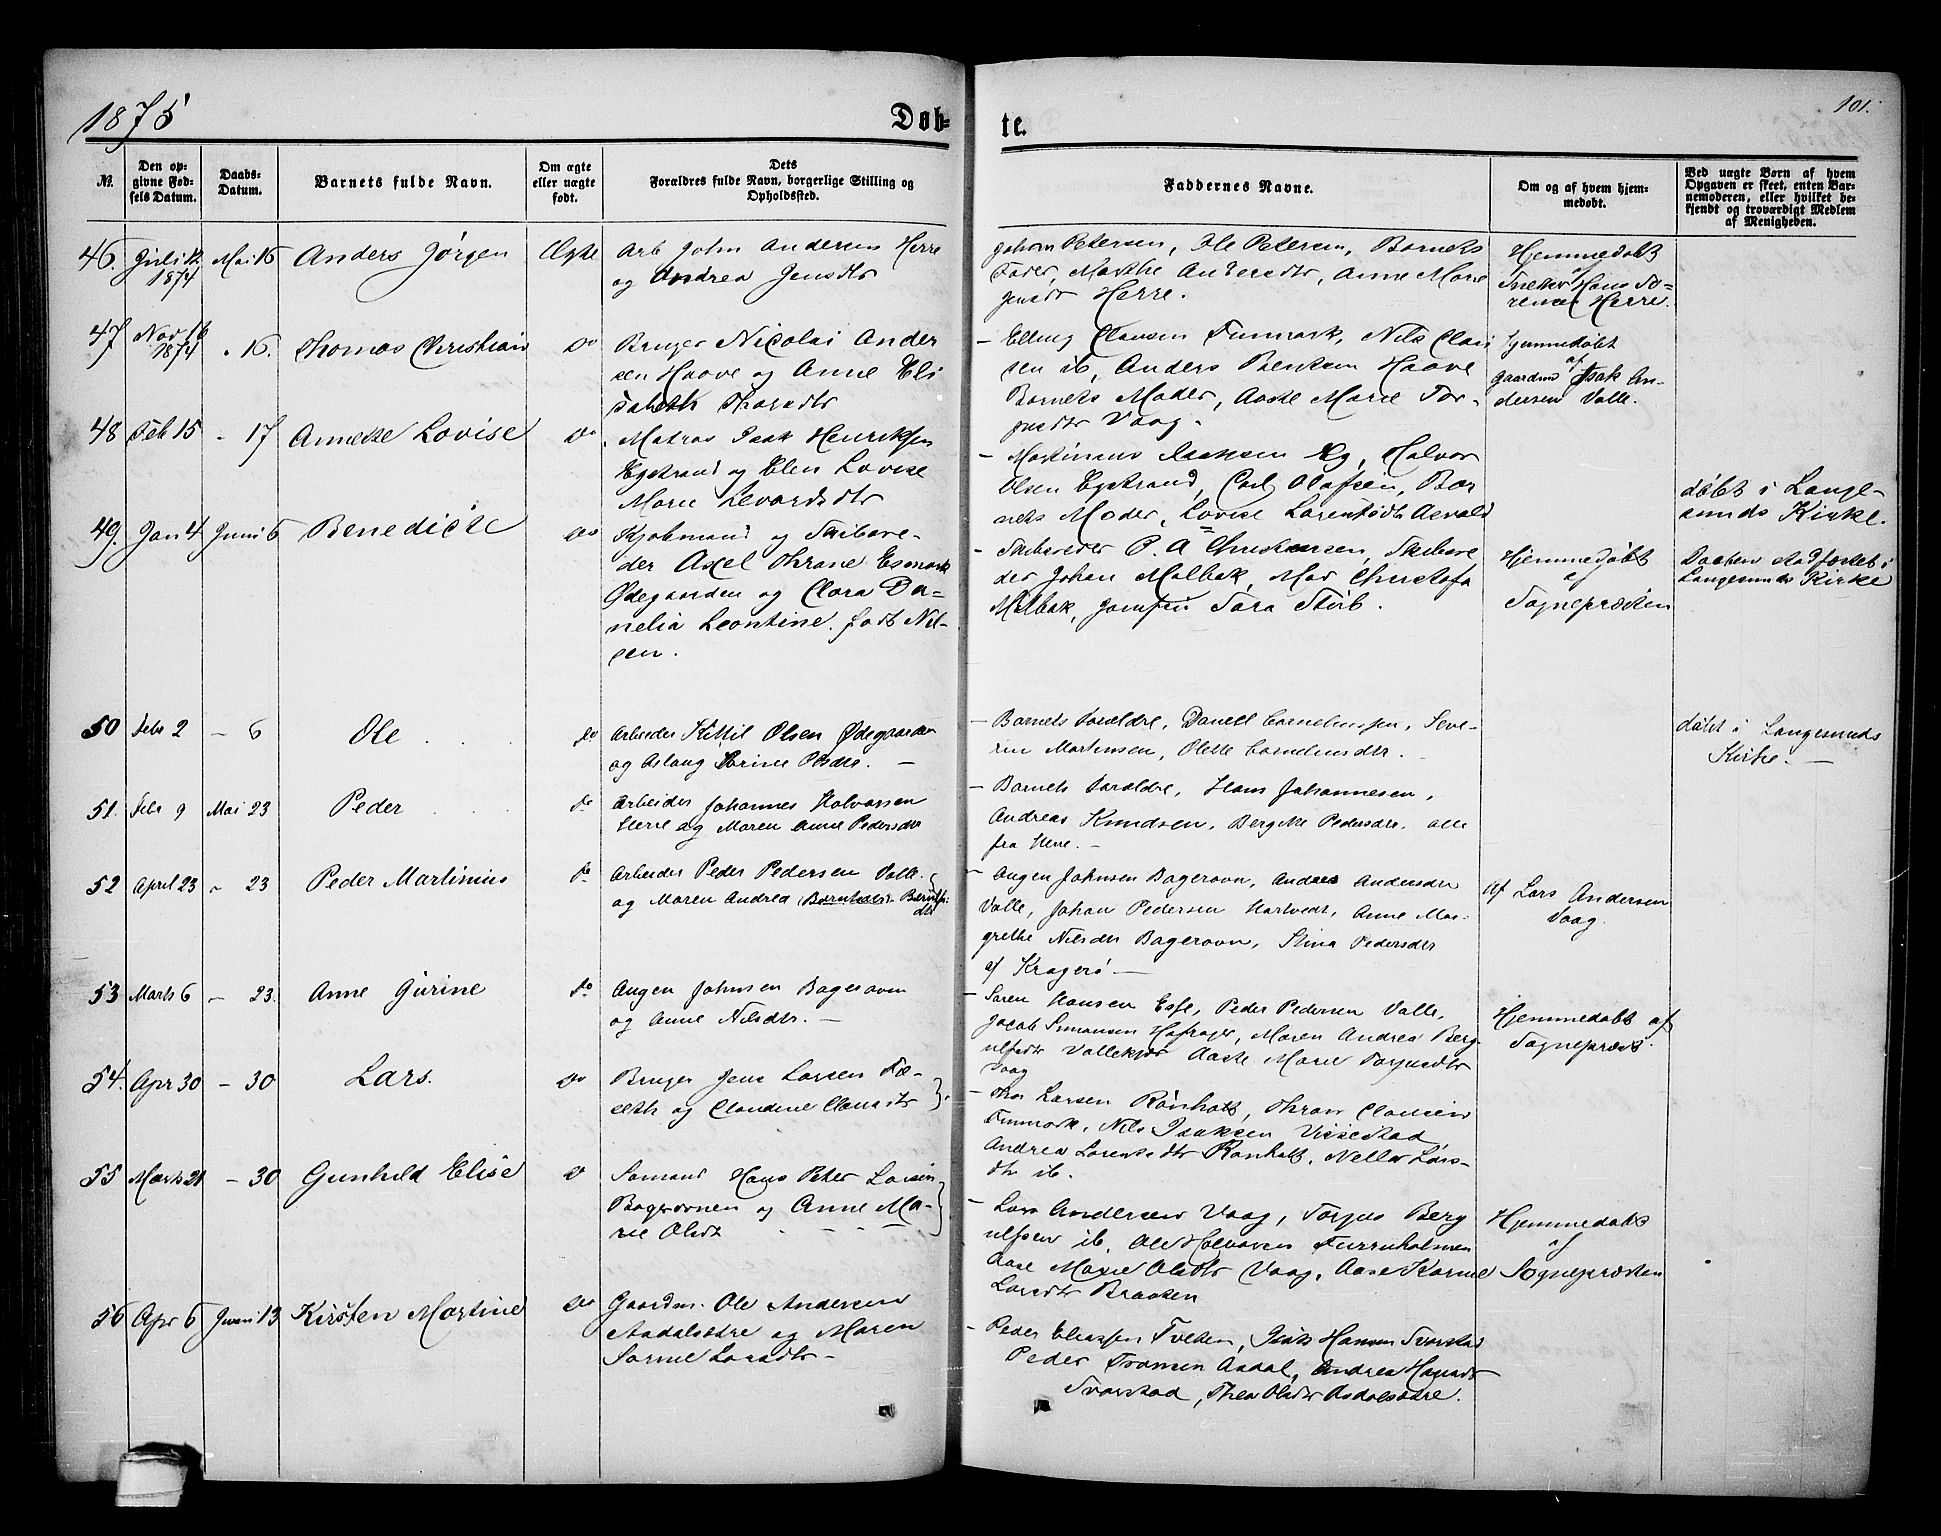 1875
Døb-
te.
101.
No.
Den op-
givne Fød-
sels Datum.
Daabs-
Datum.
Barnets fulde Navn.
Om ægte
eller uægte
født.
Dets
Forældres fulde Navn, borgerlige Stilling og
Opholdssted.
Faddernes Navne.
Om og af hvem hjem-
medøbt.
Ved uægte Børn af hvem
Opgaven er skeet, enten Bar-
nemoderen, eller hvilket be-
kjendt og troværdigt Medlem
af Menigheden.
46. Juli 12 1874 Mai 16 Anders Jørgen Ægte
Arb John Andersen Herre
og Andrea Jensdtr
Johan Petersen, Ole Petersen, Barnets
Fader, Marthe Andersdtr, Anne Marie
Jensdtr Herre.
Hjemmedøbt
af
Snekker Hans So-
rensen Herre.
47 Nov 16 1874 " 16. Thomas Christian Do
Bruger Nicolai Ander
sen Haave og Anne Eli
sabeth Thorsdtr
- Elling Clausen Finmark, Nils Claus
sen ib, Anders Bentsen Haave
Barnets Moder, Aaste Marie Tor-
jusdtr Vaag.
Hjemmedøbt
af
Gaardmd Isak An-
dersen Valle.
48 Feb 15 - 17 Annette Lovise Do
Matros Isak Henriksen
Egstrand og Elen Lovise
Marie Levordsdtr
- Martinius Isaksen Eg, Halvor
Olsen Egstrand, Carl Olafsen, Bar
nets Moder, Lovise Lorentsdtr Asvald
døbt i Lange-
sunds Kirke.
49. Jan 4 Juni 6 Benedicte Do
Kjøbmand og Skibsre-
der Axel Thrane Esmark
Ødegaarden og Clara Da-
nelia Leontine født Nil-
sen.
- Skibsreder P. A Christensen, Skibsre
der Johan Melbak, Mad Christofa
Melbak, Jomfru Sara Stib.
Hjemmedøbt
af
Sognepræsten
Daaben stadfæstet i
Langesunds Kirke
50 Febr 2 - 6 Ole Do
Arbeider Kittil Olsen Ødegaarden
og Aslaug Karine Olsdtr. -
- Barnets Forældre, Daniell Corneliussen, Seve-
rin Martinsen, Olette Corneliusdtr.
døbt i Langesunds
Kirke. -
51. Febr 9 Mai 23 Peder Do
Arbeider Johannes Halvorsen
Herre og Maren Anne Pedersdtr
- Barnets Forældre, Hans Johannesen,
Andreas Knudsen, Bergitte Pedersdtr. alle
fra Herre. -
52 April 23 - 23 Peder Martinius Do
Arbeider Peder Pedersen Valle.
og Maren Andrea Bernulfs-
dtr
- Augen Johnsen Bageravn, Anders Andersdtr
Valle, Johan Pedersen Hartvedt, Anne Mar-
grethe Nilsdtr Bageravn, Stina Pedersdtr
af Kragerø -
af Lars Andersen
Vaag.
53 Marts 6 - 23. Anne Gurine Do
Augen Johnsen Bageravn
og Anne Nilsdtr. -
- Søren Hansen Effe, Peder Pedersen Valle,
Jacob Simonsen Hafrager, Maren Andrea Berg
ulfsdtr Vallekjær Aaste Marie Torjusdtr
Vaag
Hjemmedøbt af
Sognepræst.
54. Apr 30 - 30 Lars. Do
Bruger Jens Larsen Fæ-
seth og Claudine Clausdtr
- Thor Larsen Rønholt, Thron Clausen
Finmark, Nils Isaksen Vissestad
Andrea Lorentsdtr Rønholt, Nella Lars-
dtr ib.
55 Marts 21 - 30 Gunhild Elise Do
Sømand Hans Peter Larsen
Bageravnen og Anne Ma-
rie Olsdt
- Lars Andersen Vaag, Torjus Berg
ulfsen ib, Ole Halvorsen Furruholmen
Aase Marie Olsdtr Vaag, Aase Karine
Larsdtr Braaten
Hjemmedøbt
af
Sognepræsten
56 Apr 6 Juni 13 Kirsten Martine Do
Gaardm. Ole Andersen
Aadalsødre og Maren
Sørine Larsdtr -
- Peder Eliassen Tveten, Isak Hansen Svarstad
Peder Fransen Asdal, Andrea Hansdt
Svarstad, Thea Olsdtr Asdalsødre.